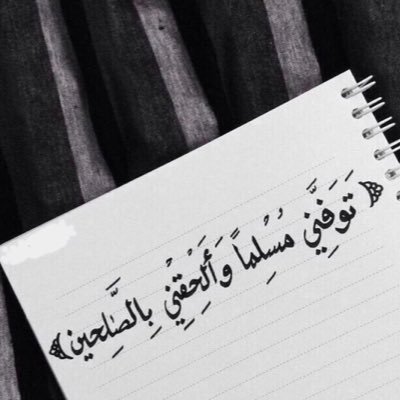 ﴿تَوَفَّنِي مُسْلِماً وَأَلْحِقْنِي بِالصَّٰلِحِين﴾